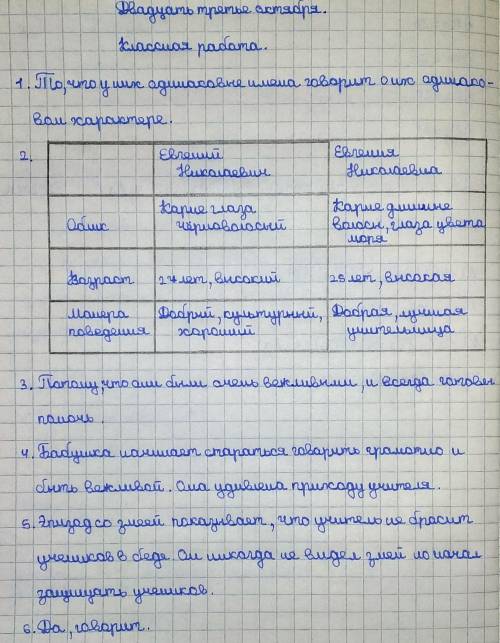 Двадцать третье октября.
Классная работа.
1. То, что у них одинаковые имена говорит о их одинако-
вом характере.
2.
Евгений Николаевич
Евгения Николаевна
Облик
Карие глаза черноволосый
Карие длинные волосы, глаза цвета моря
Возраст
27 лет, высокий
25 лет, высокая
Манера поведения
Добрый, культурный, хороший
Добрая, лучшая учительница
3. Потому, что они были очень вежливыми, и всегда готовы
помочь.
4. Бабушка начинает стараться говорить грамотно и
быть вежливой. Она удивлена приходу учителя.
5. Эпизод со змеей показывает, что учитель не бросит
учеников в беде. Он никогда не видел змей но начал
защищать учеников.
6. Да, говорит.